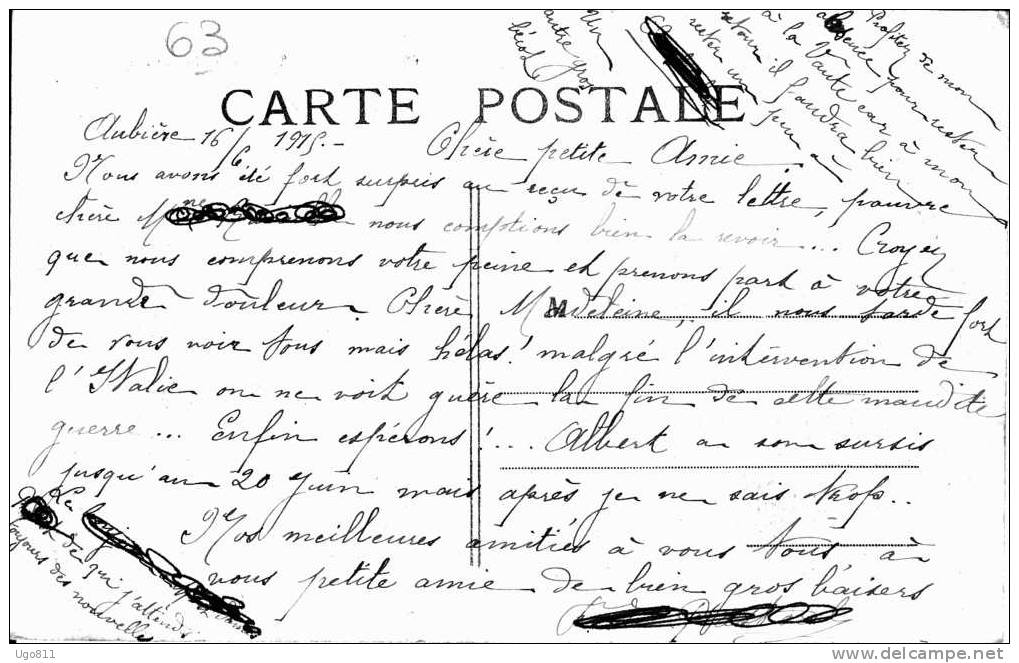 63
CARTE POSTALE
Aubière 16/6 1915.-
Chère petite Amie
Nous avons été fort surpris au reçu de votre lettre, pauvre
chère Mme nous comptions bien la revoir.... Croyez
que nous comprenons votre peine et prenons part à votre
grande douleur. Chère Madeleine, il nous tarde fort
de vous voir tous mais hélas! malgré l'intervention de
l'Italie on ne voit guère la fin de cette maudite
guerre... Enfin espérons!... Albert a son sursis
jusqu'au 20 Juin mais après je ne sais trop..
Nos meilleures amitiés à vous tous à
vous petite amie de bien gros baisers
de qui j'attends
toujours des nouvelles
Un
autre gros
bécot
Profitez de mon
absence pour rester
à la Vaute car à mon
retour il faudra bien
rester un peu à
Ugo811
delcampe.net